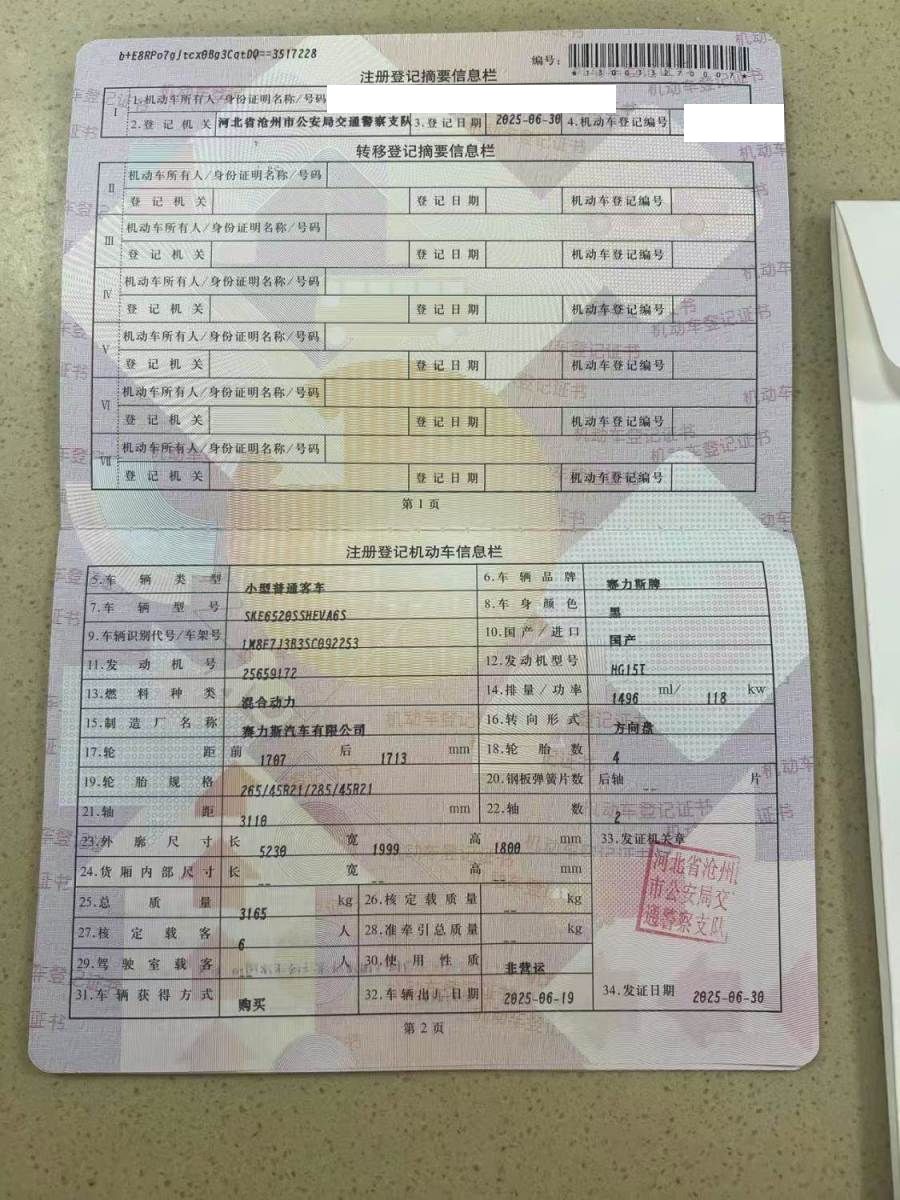 b+E8RPo7gJtcx0Bg3CatDQ==3517228
编号:
*130033270007*
注册登记摘要信息栏
I 1.机动车所有人/身份证明名称/号码
2.登记机关 河北省沧州市公安局交通警察支队 3.登记日期 2025-06-30 4.机动车登记编号
转移登记摘要信息栏
II 机动车所有人/身份证明名称/号码
登记机关 登记日期 机动车登记编号
III 机动车所有人/身份证明名称/号码
登记机关 登记日期 机动车登记编号
IV 机动车所有人/身份证明名称/号码
登记机关 登记日期 机动车登记编号
V 机动车所有人/身份证明名称/号码
登记机关 登记日期 机动车登记编号
VI 机动车所有人/身份证明名称/号码
登记机关 登记日期 机动车登记编号
VII 机动车所有人/身份证明名称/号码
登记机关 登记日期 机动车登记编号
第1页
注册登记机动车信息栏
5.车辆类型 小型普通客车 6.车辆品牌 赛力斯牌
7.车辆型号 SKE6520SSHEVA6S 8.车身颜色 黑
9.车辆识别代号/车架号 LM8F7J3B3SC092253 10.国产/进口 国产
11.发动机号 25659172 12.发动机型号 HG15T
13.燃料种类 混合动力 14.排量/功率 1496 ml/ 118 kw
15.制造厂名称 赛力斯汽车有限公司 16.转向形式 方向盘
17.轮距 前 1707 后 1713 mm 18.轮胎数 4
19.轮胎规格 265/45R21/285/45R21 20.钢板弹簧片数 后轴 -- 片
21.轴距 3110 mm 22.轴数 2
23.外廓尺寸 长 5230 宽 1999 高 1800 mm 33.发证机关章
24.货厢内部尺寸 长 -- 宽 -- 高 -- mm
河北省沧州市公安局交通警察支队
25.总质量 3165 kg 26.核定载质量 -- kg
27.核定载客 6 人 28.准牵引总质量 -- kg
29.驾驶室载客 -- 人 30.使用性质 非营运
31.车辆获得方式 购买 32.车辆出厂日期 2025-06-19 34.发证日期 2025-06-30
第2页